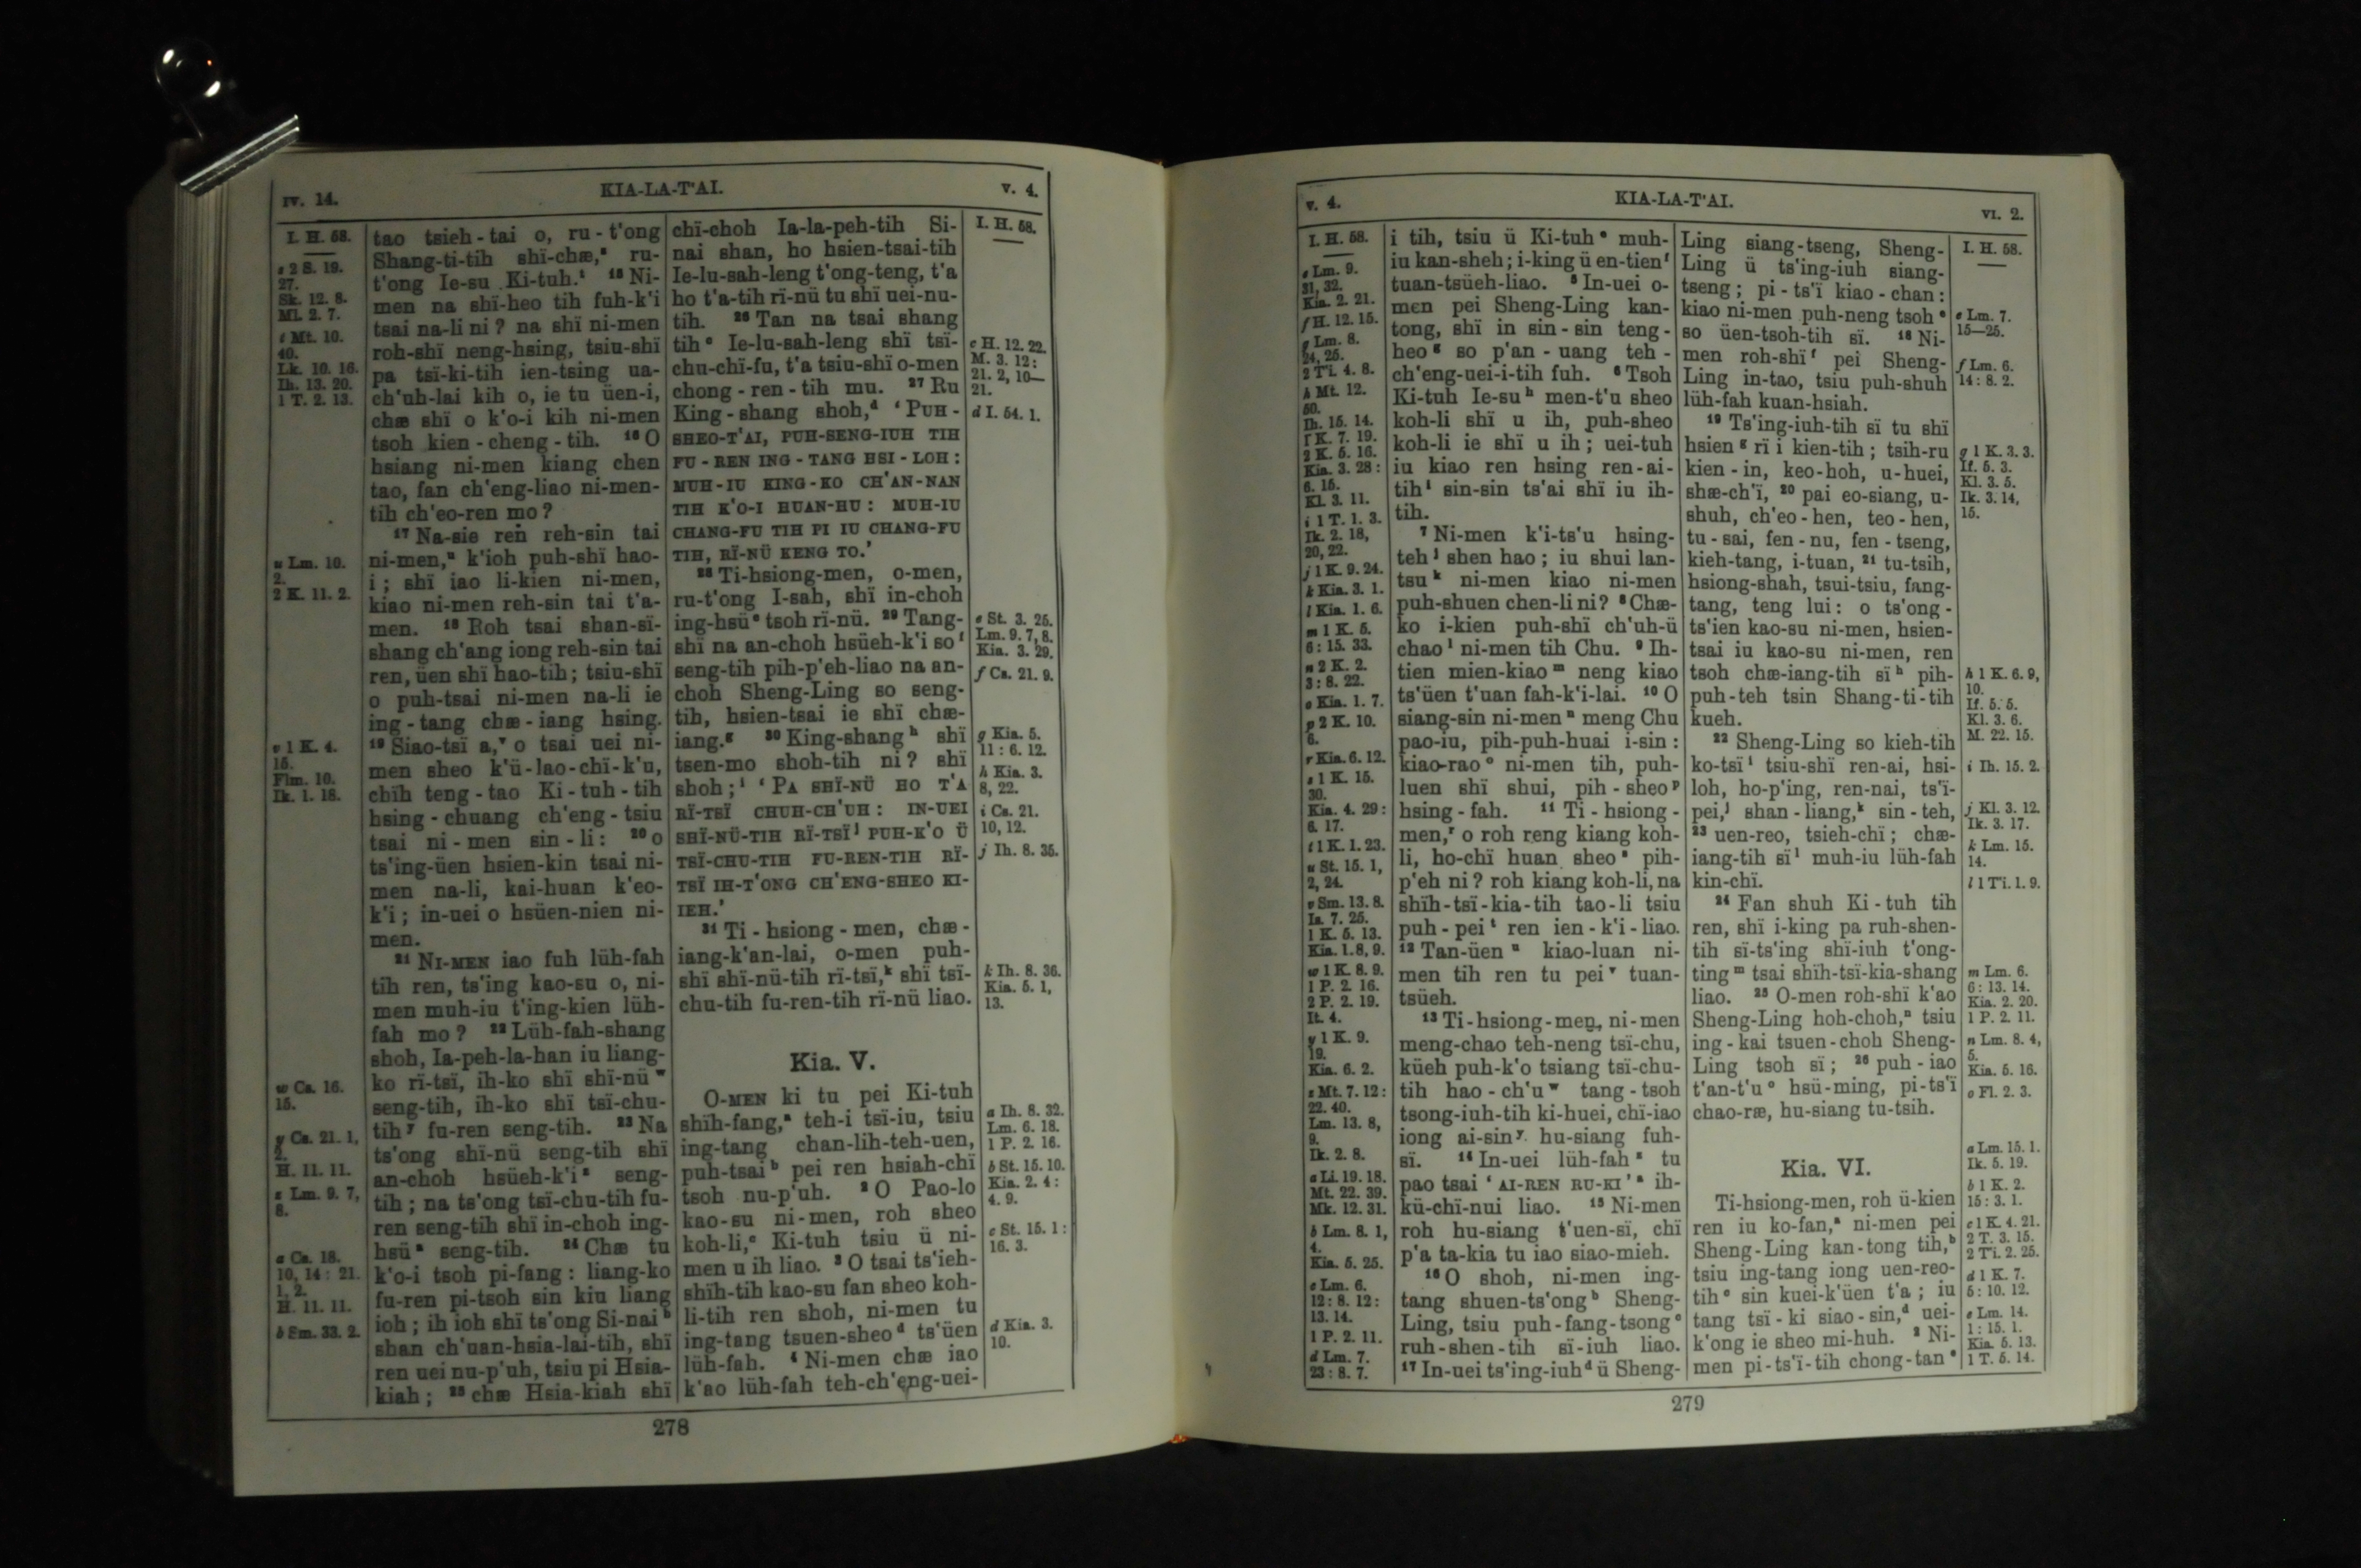 IV. 14.
KIA-LA-T'AI.
V. 4.
I. H. 58.
s 2 S. 19.
27.
Sk. 12. 8.
Ml. 2. 7.
t Mt. 10.
40.
Lk. 10. 16.
Ih. 13. 20.
1 T. 2. 13.
u Lm. 10.
2.
2 K. 11. 2.
v 1 K. 4.
15.
Flm. 10.
Ik. 1. 18.
w Cs. 16.
15.
y Cs. 21. 1,
2.
H. 11. 11.
z Lm. 9. 7,
8.
a Cs. 18.
10, 14: 21.
1, 2.
H. 11. 11.
b Sm. 33. 2.
tao tsieh-tai o, ru-t'ong
Shang-ti-tih shï-chæ,ˢ ru-
t'ong Ie-su Ki-tuh.ᵗ ¹⁵ Ni-
men na shï-heo tih fuh-k'i
tsai na-li ni? na shï ni-men
roh-shï neng-hsing, tsiu-shï
pa tsï-ki-tih ien-tsing ua-
ch'uh-lai kih o, ie tu üen-i,
chæ shï o k'o-i kih ni-men
tsoh kien-cheng-tih. ¹⁶ O
hsiang ni-men kiang chen
tao, fan ch'eng-liao ni-men-
tih ch'eo-ren mo?
¹⁷ Na-sie ren reh-sin tai
ni-men,ᵘ k'ioh puh-shï hao-
i; shï iao li-kien ni-men,
kiao ni-men reh-sin tai t'a-
men. ¹⁸ Roh tsai shan-sï-
shang ch'ang iong reh-sin tai
ren, üen shï hao-tih; tsiu-shï
o puh-tsai ni-men na-li ie
ing-tang chæ-iang hsing.
¹⁹ Siao-tsï a,ᵛ o tsai uei ni-
men sheo k'ü-lao-chï-k'u,
chïh teng-tao Ki-tuh-tih
hsing-chuang ch'eng-tsiu
tsai ni-men sin-li: ²⁰ o
ts'ing-üen hsien-kin tsai ni-
men na-li, kai-huan k'eo-
k'i; in-uei o hsüen-nien ni-
men.
²¹ NI-MEN iao fuh lüh-fah
tih ren, ts'ing kao-su o, ni-
men muh-iu t'ing-kien lüh-
fah mo? ²² Lüh-fah-shang
shoh, Ia-peh-la-han iu liang-
ko rï-tsï, ih-ko shï shï-nüʷ
seng-tih, ih-ko shï tsï-chu-
tihʸ fu-ren seng-tih. ²³ Na
ts'ong shï-nü seng-tih shï
an-choh hsüeh-k'iᶻ seng-
tih; na ts'ong tsï-chu-tih fu-
ren seng-tih shï in-choh ing-
hsüᵃ seng-tih. ²⁴ Chæ tu
k'o-i tsoh pi-fang: liang-ko
fu-ren pi-tsoh sin kiu liang
ioh; ih ioh shï ts'ong Si-naiᵇ
shan ch'uan-hsia-lai-tih, shï
ren uei nu-p'uh, tsiu pi Hsia-
kiah; ²⁵ chæ Hsia-kiah shï
chï-choh Ia-la-peh-tih Si-
nai shan, ho hsien-tsai-tih
Ie-lu-sah-leng t'ong-teng, t'a
ho t'a-tih rï-nü tu shï uei-nu-
tih. ²⁶ Tan na tsai shang
tihᶜ Ie-lu-sah-leng shï tsï-
chu-chï-fu, t'a tsiu-shï o-men
chong-ren-tih mu. ²⁷ Ru
King-shang shoh,ᵈ 'PUH-
SHEO-T'AI, PUH-SENG-IUH TIH
FU-REN ING-TANG HSI-LOH:
MUH-IU KING-KO CH'AN-NAN
TIH K'O-I HUAN-HU: MUH-IU
CHANG-FU TIH PI IU CHANG-FU
TIH, RÏ-NÜ KENG TO.'
²⁸ Ti-hsiong-men, o-men,
ru-t'ong I-sah, shï in-choh
ing-hsüᵉ tsoh rï-nü. ²⁹ Tang-
shï na an-choh hsüeh-k'i soᶠ
seng-tih pih-p'eh-liao na an-
choh Sheng-Ling so seng-
tih, hsien-tsai ie shï chæ-
iang.ᵍ ³⁰ King-shangʰ shï
tsen-mo shoh-tih ni? shï
shoh;ⁱ 'PA SHÏ-NÜ HO T'A
RÏ-TSÏ CHUH-CH'UH: IN-UEI
SHÏ-NÜ-TIH RÏ-TSÏʲ PUH-K'O Ü
TSÏ-CHU-TIH FU-REN-TIH RÏ-
TSÏ IH-T'ONG CH'ENG-SHEO KI-
IEH.'
³¹ Ti-hsiong-men, chæ-
iang-k'an-lai, o-men puh-
shï shï-nü-tih rï-tsï,ᵏ shï tsï-
chu-tih fu-ren-tih rï-nü liao.
Kia. V.
O-MEN ki tu pei Ki-tuh
shïh-fang,ᵃ teh-i tsï-iu, tsiu
ing-tang chan-lih-teh-uen,
puh-tsaiᵇ pei ren hsiah-chï
tsoh nu-p'uh. ² O Pao-lo
kao-su ni-men, roh sheo
koh-li,ᶜ Ki-tuh tsiu ü ni-
men u ih liao. ³ O tsai ts'ieh-
shïh-tih kao-su fan sheo koh-
li-tih ren shoh, ni-men tu
ing-tang tsuen-sheoᵈ ts'üen
lüh-fah. ⁴ Ni-men chæ iao
k'ao lüh-fah teh-ch'eng-uei-
I. H. 58.
c H. 12. 22.
M. 3. 12:
21. 2, 10—
21.
d I. 54. 1.
e St. 3. 25.
Lm. 9. 7, 8.
Kia. 3. 29.
f Cs. 21. 9.
g Kia. 5.
11: 6. 12.
h Kia. 3.
8, 22.
i Cs. 21.
10, 12.
j Ih. 8. 35.
k Ih. 8. 36.
Kia. 5. 1,
13.
a Ih. 8. 32.
Lm. 6. 18.
1 P. 2. 16.
b St. 15. 10.
Kia. 2. 4:
4. 9.
c St. 15. 1:
16. 3.
d Kia. 3.
10.
278
V. 4.
KIA-LA-T'AI.
VI. 2.
I. H. 58.
e Lm. 9.
31, 32.
Kia. 2. 21.
f H. 12. 15.
g Lm. 8.
24, 25.
2 Ti. 4. 8.
h Mt. 12.
50.
Ih. 15. 14.
1 K. 7. 19.
2 K. 5. 16.
Kia. 3. 28:
6. 15.
Kl. 3. 11.
i 1 T. 1. 3.
Ik. 2. 18,
20, 22.
j 1 K. 9. 24.
k Kia. 3. 1.
l Kia. 1. 6.
m 1 K. 5.
6: 15. 33.
n 2 K. 2.
3: 8. 22.
o Kia. 1. 7.
p 2 K. 10.
6.
r Kia. 6. 12.
s 1 K. 15.
30.
Kia. 4. 29:
6. 17.
t 1 K. 1. 23.
u St. 15. 1,
2, 24.
v Sm. 13. 8.
Is. 7. 25.
1 K. 5. 13.
Kia. 1. 8, 9.
w 1 K. 8. 9.
1 P. 2. 16.
2 P. 2. 19.
It. 4.
y 1 K. 9.
19.
Kia. 6. 2.
z Mt. 7. 12:
22. 40.
Lm. 13. 8,
9.
Ik. 2. 8.
a Li. 19. 18.
Mt. 22. 39.
Mk. 12. 31.
b Lm. 8. 1,
4.
Kia. 5. 25.
c Lm. 6.
12: 8. 12:
13. 14.
1 P. 2. 11.
d Lm. 7.
23: 8. 7.
i tih, tsiu ü Ki-tuhᵉ muh-
iu kan-sheh; i-king ü en-tienᶠ
tuan-tsüeh-liao. ⁵ In-uei o-
men pei Sheng-Ling kan-
tong, shï in sin-sin teng-
heoᵍ so p'an-uang teh-
ch'eng-uei-i-tih fuh. ⁶ Tsoh
Ki-tuh Ie-suʰ men-t'u sheo
koh-li shï u ih, puh-sheo
koh-li ie shï u ih; uei-tuh
iu kiao ren hsing ren-ai-
tihⁱ sin-sin ts'ai shï iu ih-
tih.
⁷ Ni-men k'i-ts'u hsing-
tehʲ shen hao; iu shui lan-
tsuᵏ ni-men kiao ni-men
puh-shuen chen-li ni? ⁸ Chæ-
ko i-kien puh-shï ch'uh-ü
chaoˡ ni-men tih Chu. ⁹ Ih-
tien mien-kiaoᵐ neng kiao
ts'üen t'uan fah-k'i-lai. ¹⁰ O
siang-sin ni-menⁿ meng Chu
pao-iu, pih-puh-huai i-sin:
kiao-raoᵒ ni-men tih, puh-
luen shï shui, pih-sheoᵖ
hsing-fah. ¹¹ Ti-hsiong-
men,ʳ o roh reng kiang koh-
li, ho-chï huan sheoˢ pih-
p'eh ni? roh kiang koh-li, na
shïh-tsï-kia-tih tao-li tsiu
puh-peiᵗ ren ien-k'i-liao.
¹² Tan-üenᵘ kiao-luan ni-
men tih ren tu peiᵛ tuan-
tsüeh.
¹³ Ti-hsiong-men, ni-men
meng-chao teh-neng tsï-chu,
küeh puh-k'o tsiang tsï-chu-
tih hao-ch'uʷ tang-tsoh
tsong-iuh-tih ki-huei, chï-iao
iong ai-sinʸ hu-siang fuh-
sï. ¹⁴ In-uei lüh-fahᶻ tu
pao tsai 'AI-REN RU-KI'ᵃ ih-
kü-chï-nui liao. ¹⁵ Ni-men
roh hu-siang t'uen-sï, chï
p'a ta-kia tu iao siao-mieh.
¹⁶ O shoh, ni-men ing-
tang shuen-ts'ongᵇ Sheng-
Ling, tsiu puh-fang-tsongᶜ
ruh-shen-tih sï-iuh liao.
¹⁷ In-uei ts'ing-iuhᵈ ü Sheng-
Ling siang-tseng, Sheng-
Ling ü ts'ing-iuh siang-
tseng; pi-ts'ï kiao-chan:
kiao ni-men puh-neng tsohᵉ
so üen-tsoh-tih sï. ¹⁸ Ni-
men roh-shïᶠ pei Sheng-
Ling in-tao, tsiu puh-shuh
lüh-fah kuan-hsiah.
¹⁹ Ts'ing-iuh-tih sï tu shï
hsienᵍ rï i kien-tih; tsih-ru
kien-in, keo-hoh, u-huei,
shæ-ch'ï, ²⁰ pai eo-siang, u-
shuh, ch'eo-hen, teo-hen,
tu-sai, fen-nu, fen-tseng,
kieh-tang, i-tuan, ²¹ tu-tsih,
hsiong-shah, tsui-tsiu, fang-
tang, teng lui: o ts'ong-
ts'ien kao-su ni-men, hsien-
tsai iu kao-su ni-men, ren
tsoh chæ-iang-tih sïʰ pih-
puh-teh tsin Shang-ti-tih
kueh.
²² Sheng-Ling so kieh-tih
ko-tsïⁱ tsiu-shï ren-ai, hsi-
loh, ho-p'ing, ren-nai, ts'ï-
pei,ʲ shan-liang,ᵏ sin-teh,
²³ uen-reo, tsieh-chï; chæ-
iang-tih sïˡ muh-iu lüh-fah
kin-chï.
²⁴ Fan shuh Ki-tuh tih
ren, shï i-king pa ruh-shen-
tih sï-ts'ing shï-iuh t'ong-
tingᵐ tsai shïh-tsï-kia-shang
liao. ²⁵ O-men roh-shï k'ao
Sheng-Ling hoh-choh,ⁿ tsiu
ing-kai tsuen-choh Sheng-
Ling tsoh sï; ²⁶ puh-iao
t'an-t'uᵒ hsü-ming, pi-ts'ï
chao-ræ, hu-siang tu-tsih.
Kia. VI.
Ti-hsiong-men, roh ü-kien
ren iu ko-fan,ᵃ ni-men pei
Sheng-Ling kan-tong tih,ᵇ
tsiu ing-tang iong uen-reo-
tihᶜ sin kuei-k'üen t'a; iu
tang tsï-ki siao-sin,ᵈ uei-
k'ong ie sheo mi-huh. ² Ni-
men pi-ts'ï-tih chong-tanᵉ
I. H. 58.
e Lm. 7.
15—25.
f Lm. 6.
14: 8. 2.
g 1 K. 3. 3.
If. 5. 3.
Kl. 3. 5.
Ik. 3. 14,
15.
h 1 K. 6. 9,
10.
If. 5. 5.
Kl. 3. 6.
M. 22. 15.
i Ih. 15. 2.
j Kl. 3. 12.
Ik. 3. 17.
k Lm. 15.
14.
l 1 Ti. 1. 9.
m Lm. 6.
6: 13. 14.
Kia. 2. 20.
1 P. 2. 11.
n Lm. 8. 4,
5.
Kia. 5. 16.
o Fl. 2. 3.
a Lm. 15. 1.
Ik. 5. 19.
b 1 K. 2.
15: 3. 1.
c 1 K. 4. 21.
2 T. 3. 15.
2 Ti. 2. 25.
d 1 K. 7.
5: 10. 12.
e Lm. 14.
1: 15. 1.
Kia. 5. 13.
1 T. 5. 14.
279